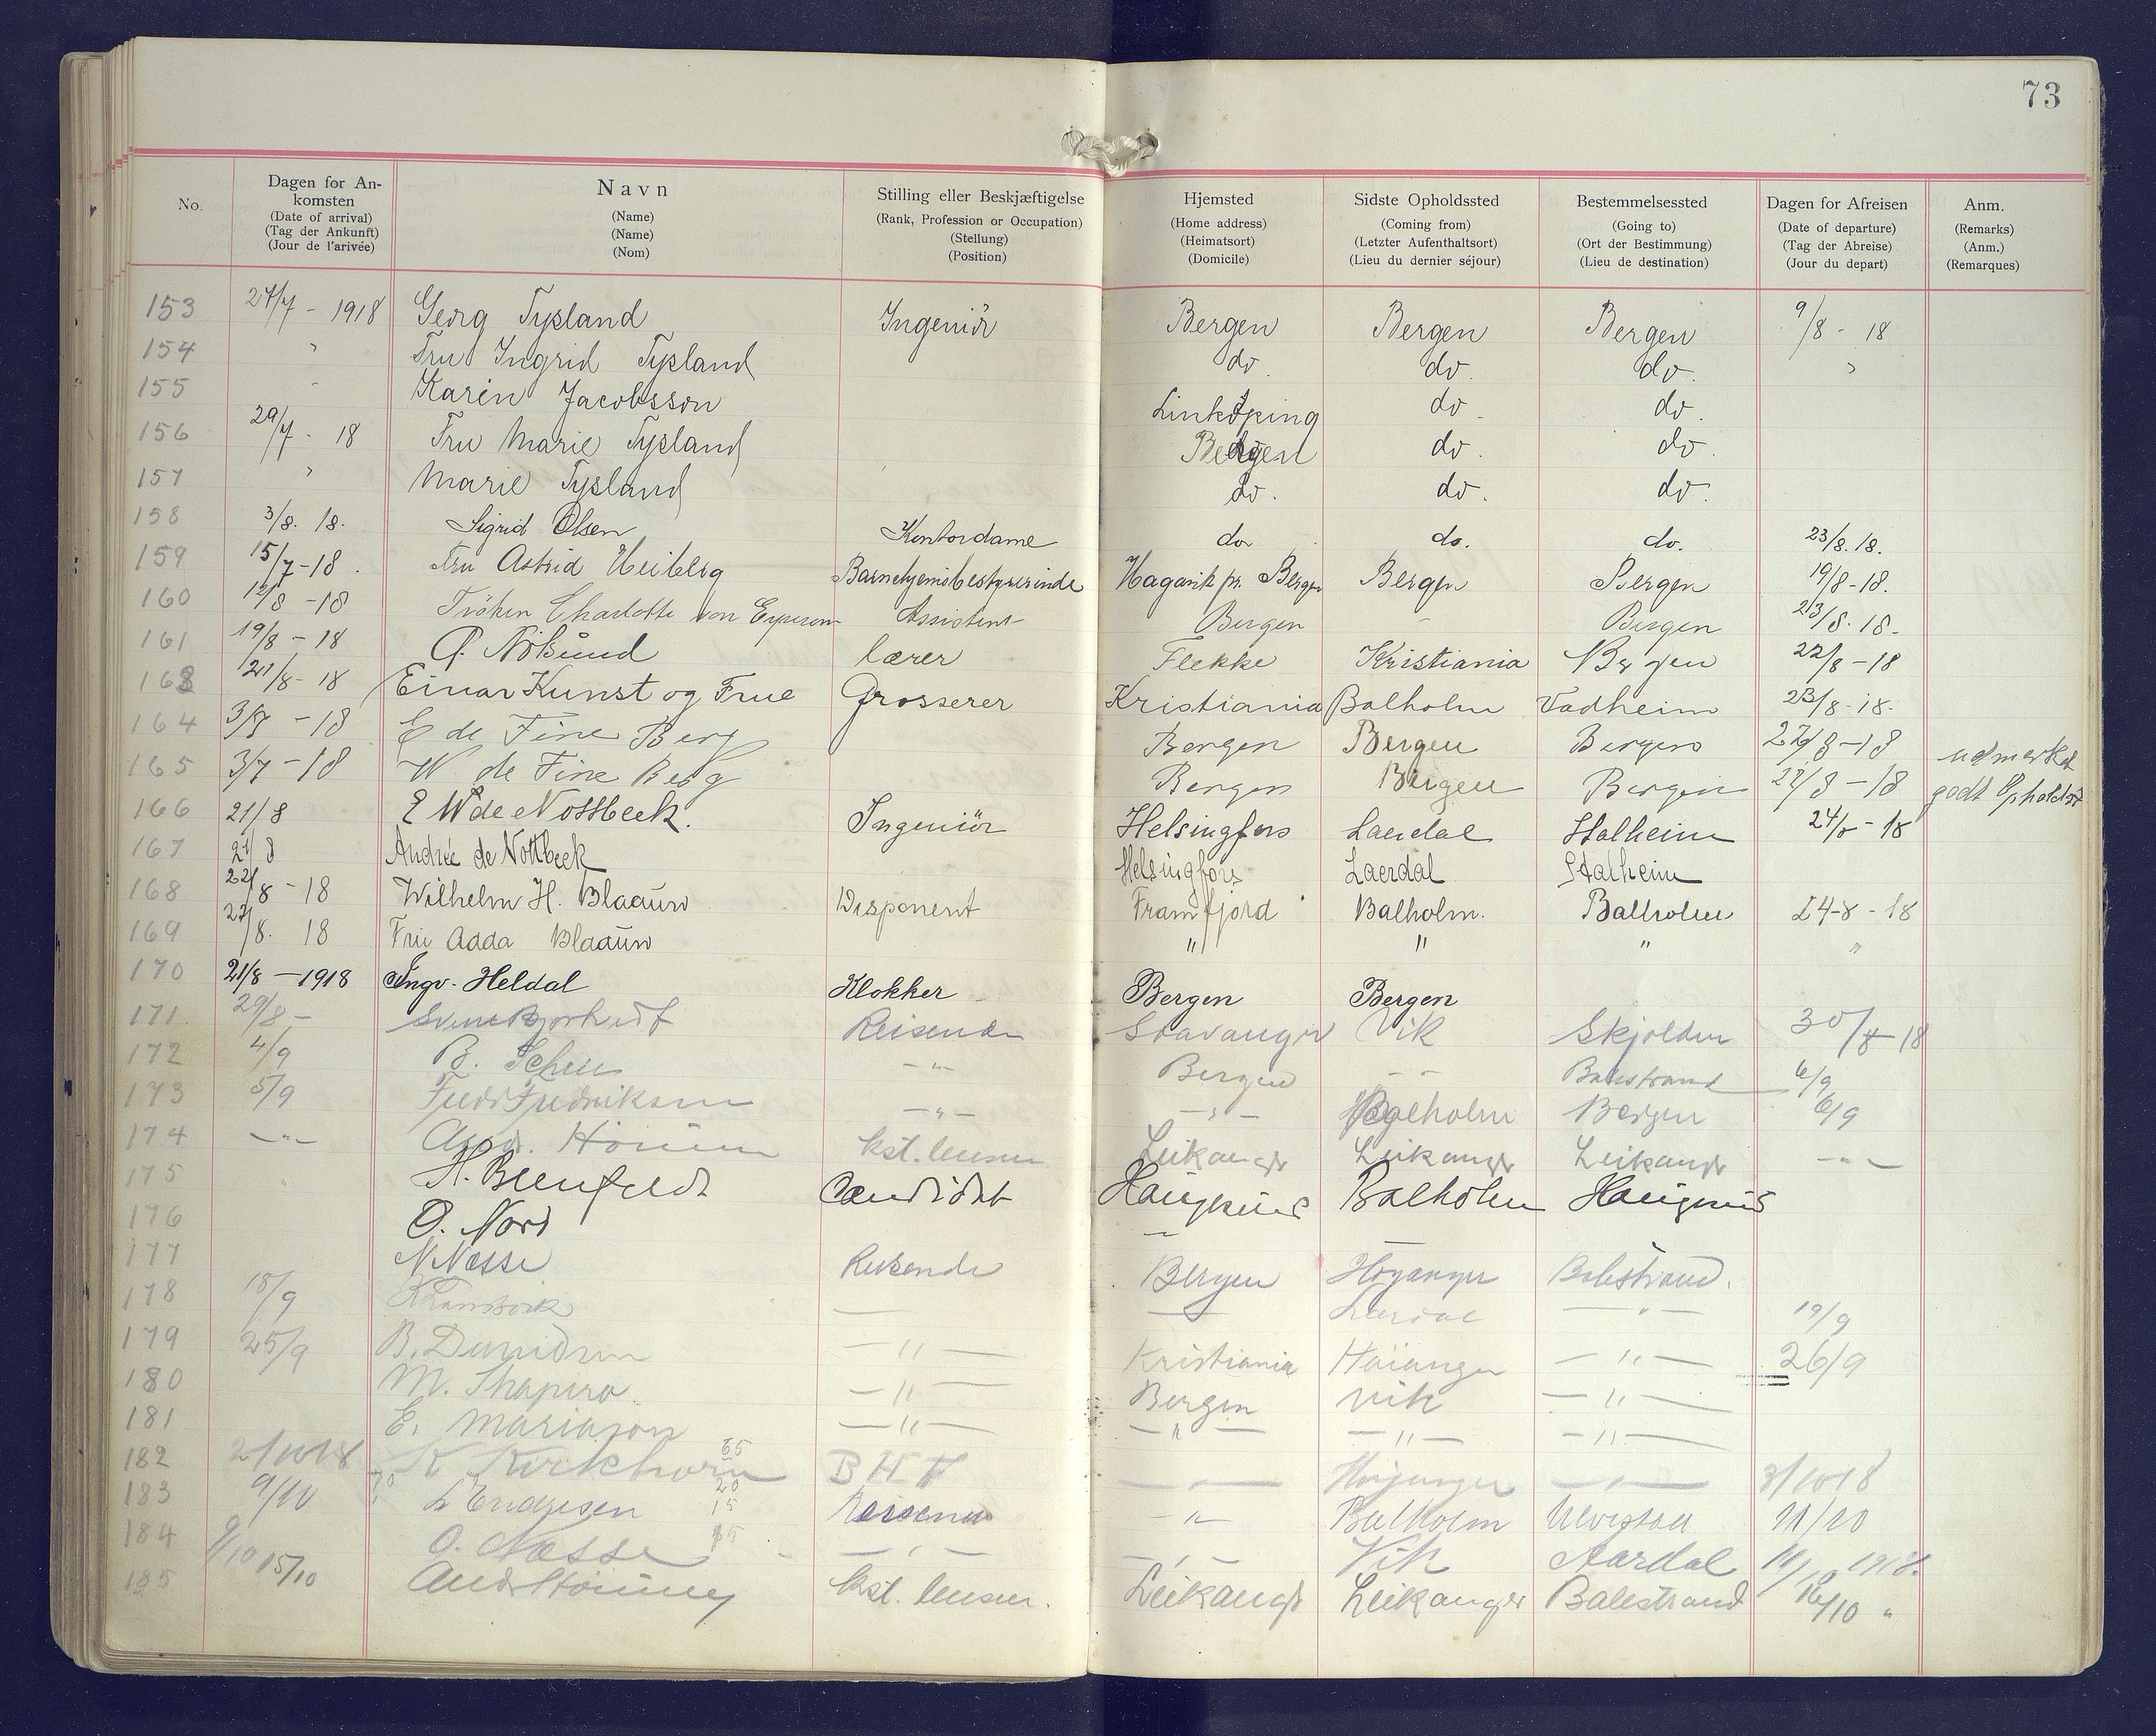 73
No. Dagen for An- Navn Stilling eller Beskjæftigelse Hjemsted Sidste Opholdssted Bestemmelsessted Dagen for Afreisen Anm.
komsten
(Date of arrival) (Name) (Rank, Profession or Occupation) (Home address) (Coming from) (Going to) (Date of departure) (Remarks)
(Tag der Ankunft) (Name) (Stellung) (Heimatsort) (Letzter Aufenthaltsort) (Ort der Bestimmung) (Tag der Abreise) (Anm.)
(Jour de l'arivée) (Nom) (Position) (Domicile) (Lieu du dernier séjour) (Lieu de destination) (Jour du depart) (Remarques)
153 27/7 - 1918 Georg Tysland Ingeniör Bergen Bergen Bergen 9/8 - 18
154 " Fru Ingrid Tysland do do. do. "
155 " Karin Jacobsson Linköping do. do.
156 29/7 - 18 Fru Marie Tysland Bergen do. do.
157 " Marie Tysland do. do. do.
158 3/8. 18. Sigrid Olsen Kontordame do do. do. 23/8. 18.
159 15/7-18. Fru Astrid Heiberg Barnehjemsbestyrerinde Hagavik pr. Bergen Bergen Bergen 19/8-18.
160 12/8 -18 Fröken Charlotte von Assistent Bergen - Bergen 23/8. 18.
161 19/8 - 18 lærer Flekke Kristiania Bergen 22/8 -18
163 21/8- 18 Einar Kunst og Frue Grosserer Kristiania Balholm Vadheim 23/8-18.
164 - 18 E de Fine Berg Bergen Bergen Bergen 8-18 udmerket
165 3/7 - 18 W de Fine Berg Bergen Bergen Bergen 27/8 - 18 godt Ophold
166 21/8 E W de Nottbeck. Ingeniör Helsingfors Laerdal Stalheim 24/8 - 18
167 21/8 Andrée de Nottbeck Helsingfors Laerdal Stalheim
168 22/8 - 18 Wilhelm H. Blaauw Disponent Framfjord Balholm. Balholm 24-8 - 18
169 22/8. 18 Fru Adda Blaauw " " " "
170 21/8 -1918 Ingv. Heldal Klokker Bergen Bergen
171 29/8 - Reisende Stavanger Vik Skjolden 30/8-18
172 4/9 B. -"- Bergen - - Balestrand 6/9
173 5/9 Fredr Fredriksen -"- -"- Balholm Bergen 6/9
174 -"- kst. lensm Leikanger Leikanger Leikanger -"-
175 H. Candidat Balholm
176 O. Nord
177 N Næsse Reisende Bergen Höyanger Balestrand.
178 18/9 Lærdal -"- 19/9
179 25/9 B. Davidsen -"- Kristiania Höianger -"- 26/9
180 M. Shapiro -"- Bergen Vik -"-
181 E. Mariason -"- -"- -"- -"-
182 2/10 18 K Kirkhorn 65 B H T -"- Höyanger -"- 3/10 18
183 9/10 70 L Endresen 20 15 Reisende -"- Balholm 11/10
184 9/10 O. Næsse 15 -"- -"- Vik Aardal 1918.
185 15/10 kst. lensm. Leikanger Leikanger Balestrand 16/10 "